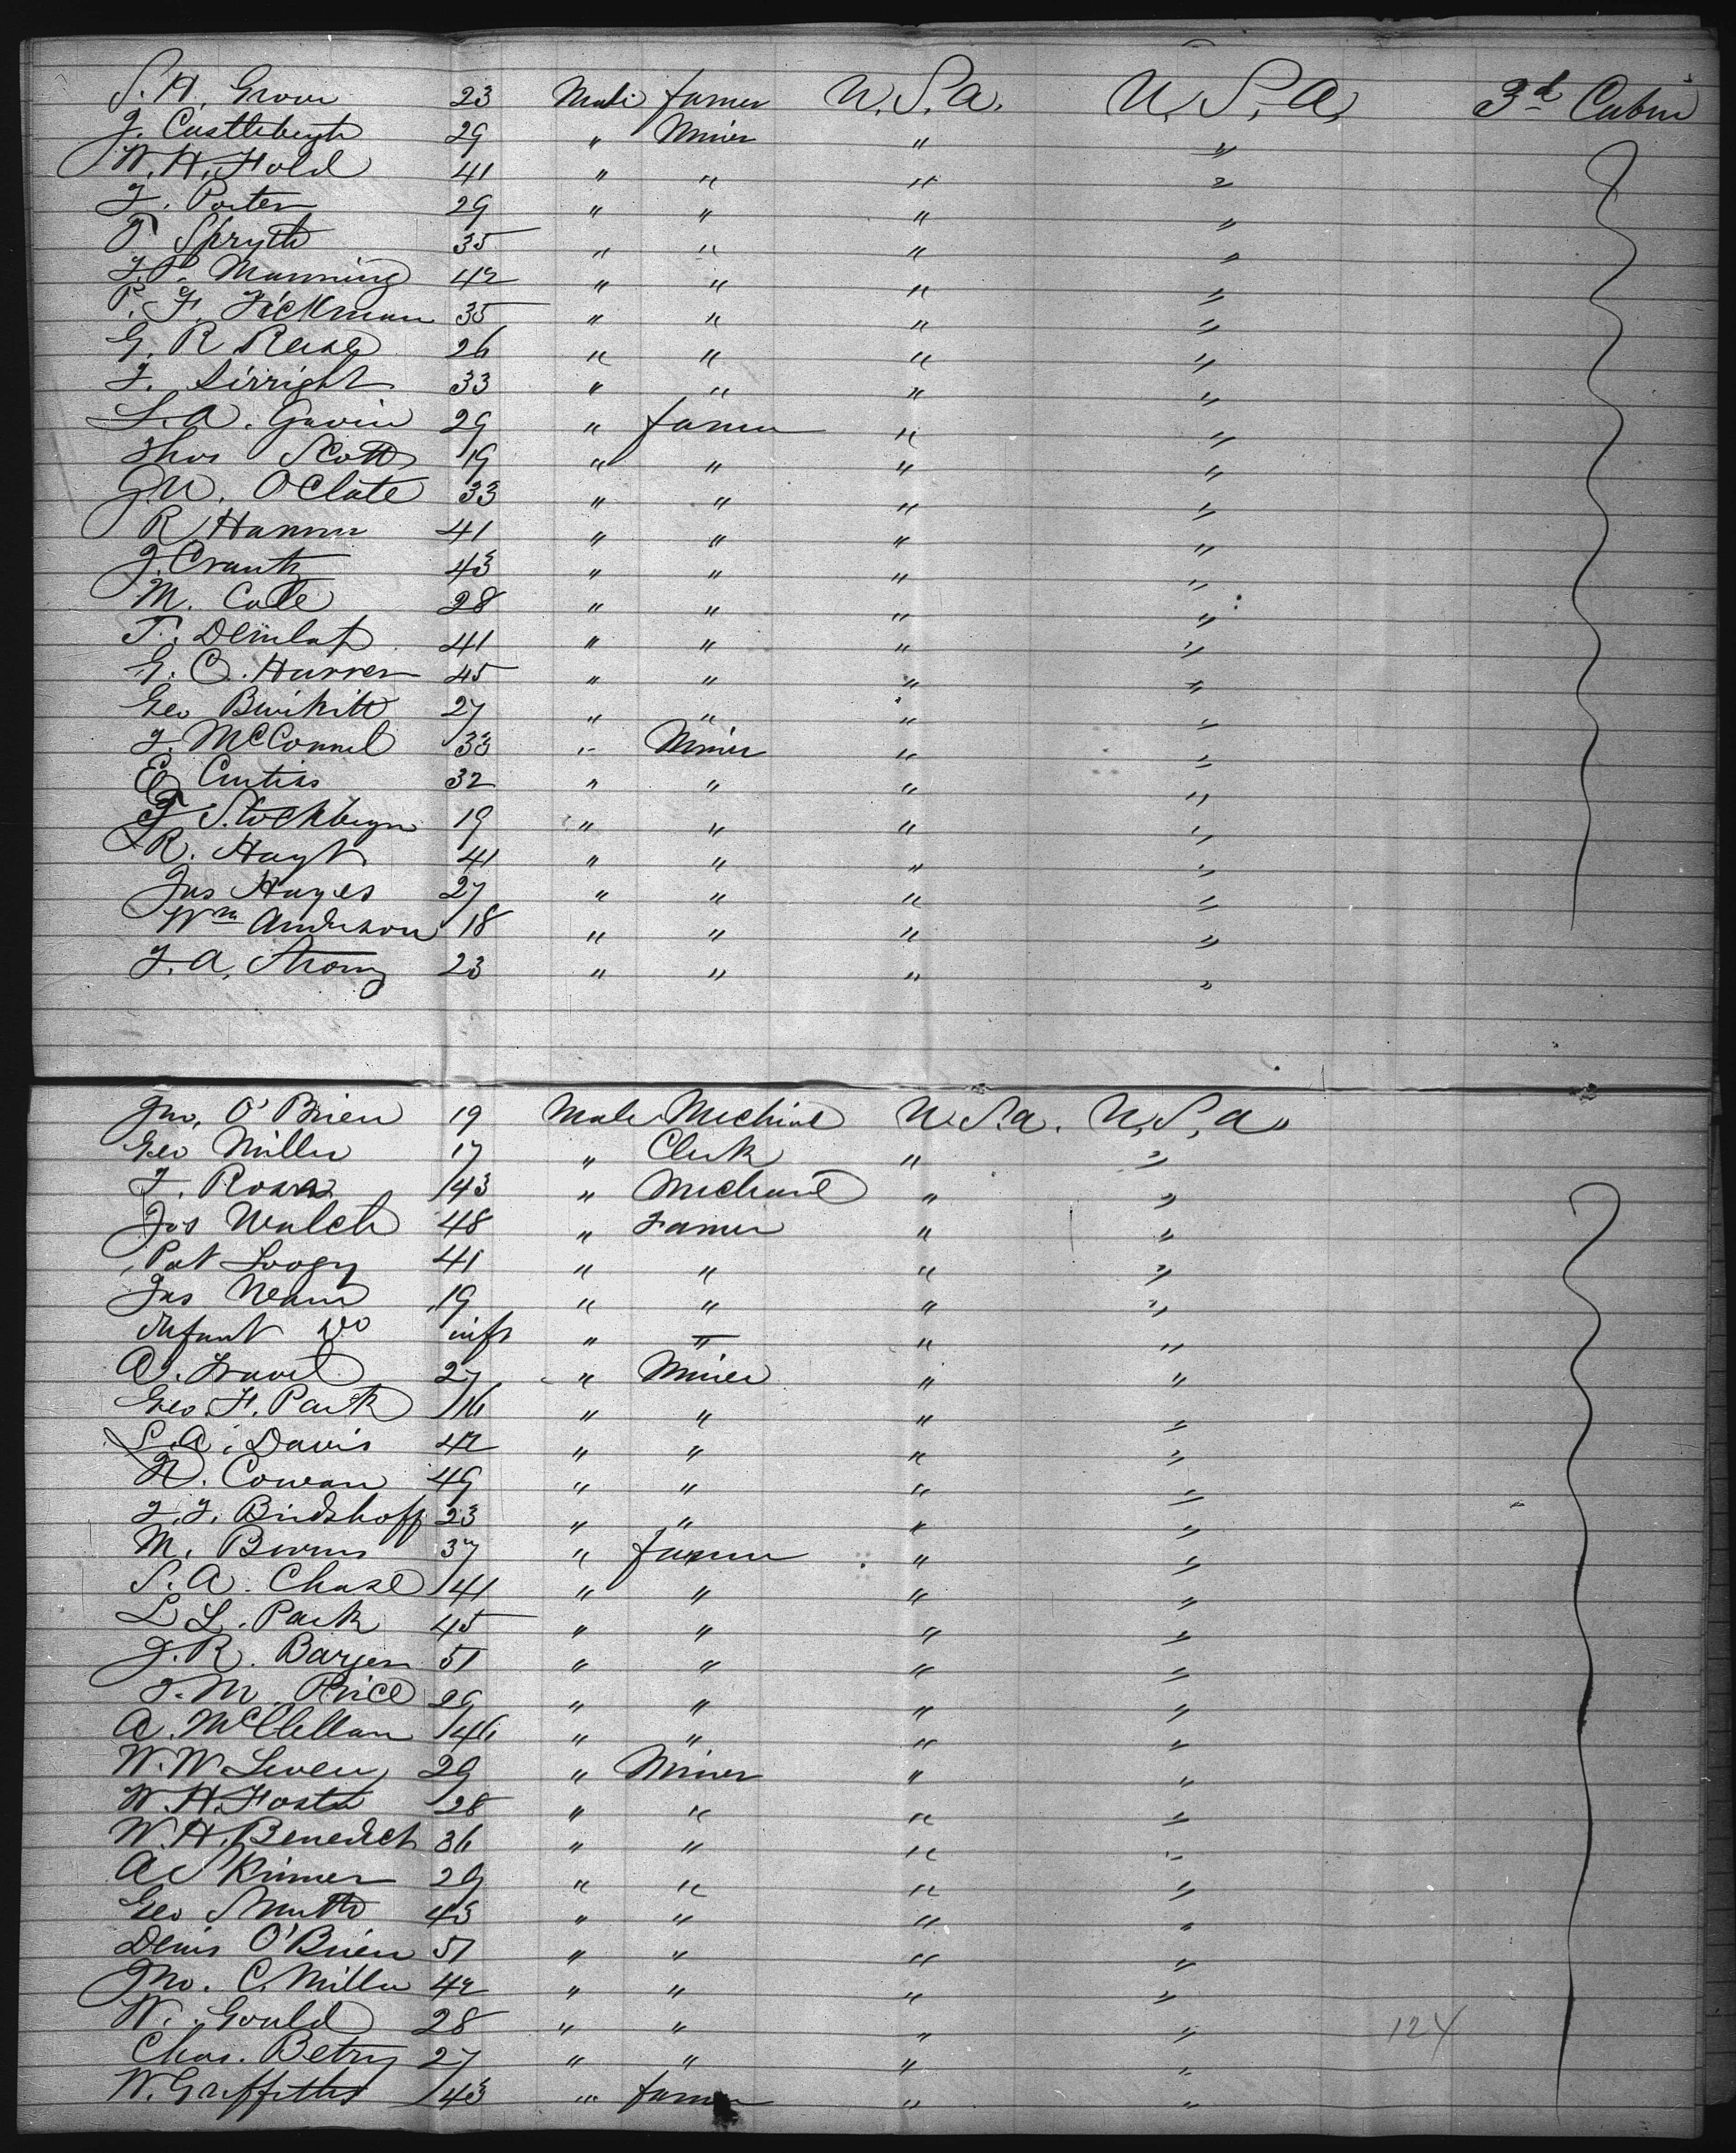 S. H. Grover 23 Male farmer U.S.a. U.S.A. 3d Cabin
J. Castlebergh 29 " Miner " "
W. H. Hold 41 " " " "
J. Porter 29 " " " "
T Spryth 35 " " " "
J. P. Manning 42 " " " "
P. F. Hickman 35 " " " "
G. R Rease 26 " " " "
J. 33 " " " "
L. A. Gavin 29 " farmer " "
Thos Scott 19 " " " "
J. W. OClate 33 " " " "
R Hannon 41 " " " "
J. Crautz 43 " " " "
M. Cole 28 " " " "
T. 41 " " " "
G. C. Harren 45 " " " "
Geo 27 " " " "
J. McConnel 33 " Miner " "
E Curtiss 32 " " " "
T 19 " " " "
R. Hayt 41 " " " "
Jas Hayes 27 " " " "
Wm Anderson 18 " " " "
J. A. Strong 23 " " " "
Jno. O'Brien 19 Male Mechinc U.S.a. U.S.a.
Geo Miller 17 " Clerk " "
J. 43 " Mechanic " "
Jos Walch 48 " Farmer " "
Pat Loogy 41 " " " "
Jas 19 " " " "
Infant Do inft " " " "
A. 27 " Miner " "
Geo. F. Park 16 " " " "
L. A. Davis 42 " " " "
N. Cowan 49 " " " "
J. J. Birdshoff 23 " " " "
M. Burns 37 " farmer " "
S. A. Chase 41 " " " "
L L. Park 45 " " " "
J. R. Barger 51 " " " "
J. M. Price 29 " " " "
A. McClellan 46 " " " "
W. W. Lwen 29 " Miner " "
W. H. Foster 28 " " " "
W. H. Benedict 36 " " " "
A Skinner 29 " " " "
Geo Smith 43 " " " "
Denis O'Brien 51 " " " "
Jno. C. Miller 42 " " " "
W. Gould 28 " " " " 124
Chas. Betry 27 " " " "
W. Griffiths 43 " farmer " "